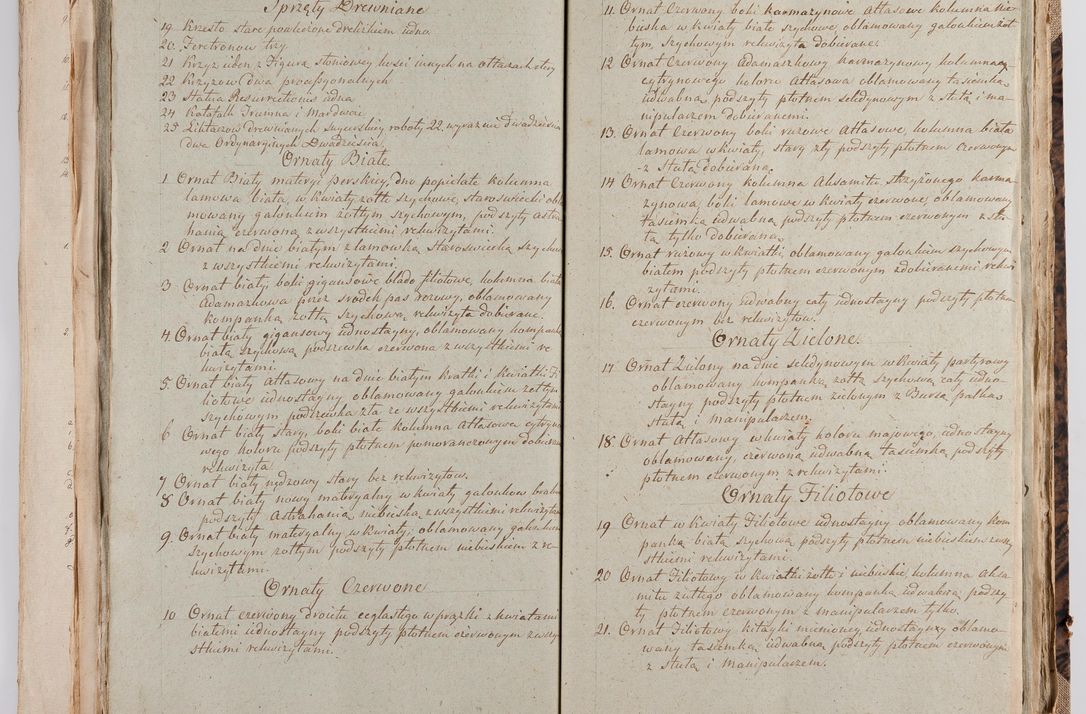 Sprzęty Drewniane
19 Krzesło stare powleczone drelichiem iedno.
20. Feretronow trzy
21 Krzyż ieden z Figurą słoniowey kości innych na ołtarzach trzy
22 Krzyżow Dwa processyonalnych
23 Statua Resurrectionis iedna
24 Katafalk Trumna i Mardwere
25. Lichtarzow drewnianych Snycerskiey roboty 22. wyraznie Dwadziescia
dwa Ordynaryinych Dwadziescia.
Ornaty Białe.
1 Ornat Biały materyi perskiey, dno popielate kolumna
lamowa biała, w kwiaty zołte szychowe, staroswiecki obla
mowany galonkiem zołtym szychowym, podszyty Astra
hanią czerwoną z wszystkiemi rekwizytami.
2 Ornat na dnie białym z lamowką staroswiecką szychow
z wszystkiemi rekwizytami.
3 Ornat biały, boki gigansowe blado filiotowe, kolumna biała
Adamazkowa przez srodek pas rozowy, oblamowany
kompanką zołtą szychową rekwizyta dobierane.
4. Ornat biały gigansowy iednostayny, oblamowany kompanką
białą szychową podszewka czerwona z wszystkiemi re
kwizytami.
5. Ornat biały Atłasowy na dnie białym kratki i kwiatki Fi
liotowe iednostayny oblamowany galonkiem zołtym
szychowym podszewka zła ze wszystkiemi rekwizytami
6 Ornat biały stary, boki białe kolumna Atłasowa cytryno
wego koloru podszyty płotnem pomoranczowym dobierane
rekwizyta.
7 Ornat biały nędzowy stary bez rekwizytow.
8 Ornat biały nowy materyalny w kwiaty galonkow brabn
podszyty Astrahanią niebieską z wszystkiemi rekwizytam
9. Ornat biały materyalny w kwiaty, oblamowany galonkiem
szychowym zołtym podszyty płotnem niebieskiem z re-
kwizytami.
Ornaty Czerwone
10. Ornat czerwony droietu ceglastego w prązki z kwiatami
białemi iednostayny podszyty płotnem czerwonym z wszy
stkiemi rekwizytami.
11. Ornat Czerwony boki karmazynowe Atłasowe kolumna nie
bieska w kwiaty białe szychowe oblamowany galonkiem zoł
tym, szychowym rekwizyta dobierane.
12 Ornat Czerwony Adamazkowy karmazynowy kolumna
cytrynowego koloru Atłasowa oblamowany tasiemką
iedwabną podszyty płotnem seledynowym z stułą i ma-
nipularzem dobieranemi.
13. Ornat Czerwony boki rozowe Atłasowe, kolumna biała
lamowa w kwiaty, stary zły podszyty płotnem czerwonym
z stułą dobieraną.
14 Ornat Czerwony kolumna Aksamitu strzyżonego karma-
zynowa, boki lamowe w kwiaty czerwone, oblamowany
tasiemką iedwabną podszyty płotnem czerwonym z stu-
łą tylko dobieraną.
15. Ornat rużowy w kwiatki, oblamowany galonkiem szychowym
białem podszyty płotnem czerwonem z dobieranemi rekwi
zytami.
16. Ornat czerwony iedwabny cały iednostayny podszyty płotnem
czerwonym bez rekwizytow.
Ornaty Zielone.
17 Ornat Zielony na dnie seledynowym w kwiaty partyrowy
oblamowany kompanką zołtą szychową cały iedno-
stayny podszyty płotnem zielonym z Bursą palką
stułą i manipularzem.
18. Ornat Atłasowy w kwiaty koloru maiowego, iednostayny
oblamowany, czerwoną iedwabną tasiemką podszyty
płotnem czerwonym z rekwizytami.
Ornaty Filiotowe
19 Ornat w kwiaty Filiotowe iednostayny oblamowany kom
panką białą szychową podszyty płotnem niebieskiem z wszy
stkiemi rekwizytami.
20 Ornat Filiotowy w kwiatki żołte i niebieskie, kolumna Aksa
mitu żułtego oblamowany kompanką iedwabną podszy
ty płotnem czerwonym z manipularzem tylko.
21. Ornat Filiotowy kitayki mieniącey iednostayny oblamo-
wany tasiemką iedwabną podszyty płotnem czerwonym
z stułą i manipularzem.